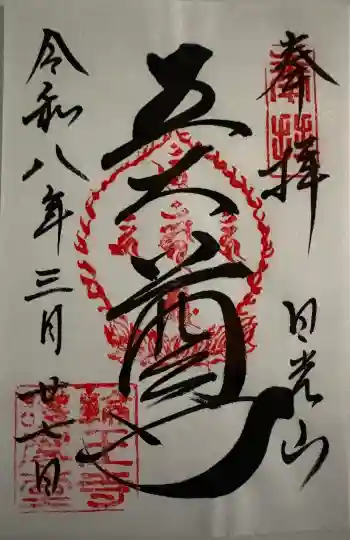 奉拝
日光山
五大尊
令和八年三月廿七日